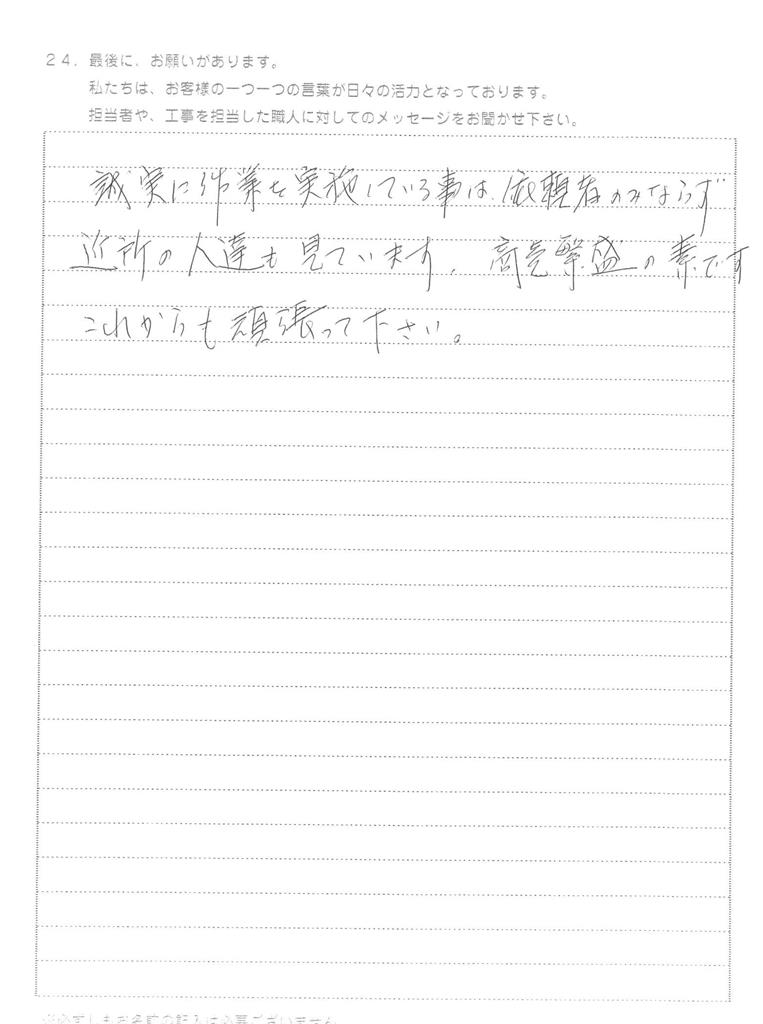 24. 最後に、お願いがあります。
私たちは、お客様の一つ一つの言葉が日々の活力となっております。
担当者や、工事を担当した職人に対してのメッセージをお聞かせ下さい。
誠実に作業を実施している事は依頼者のみならず
近所の人達も見ています. 商売繁盛の素です
これからも頑張って下さい。
※必ずしもお名前の記入は必要ございません